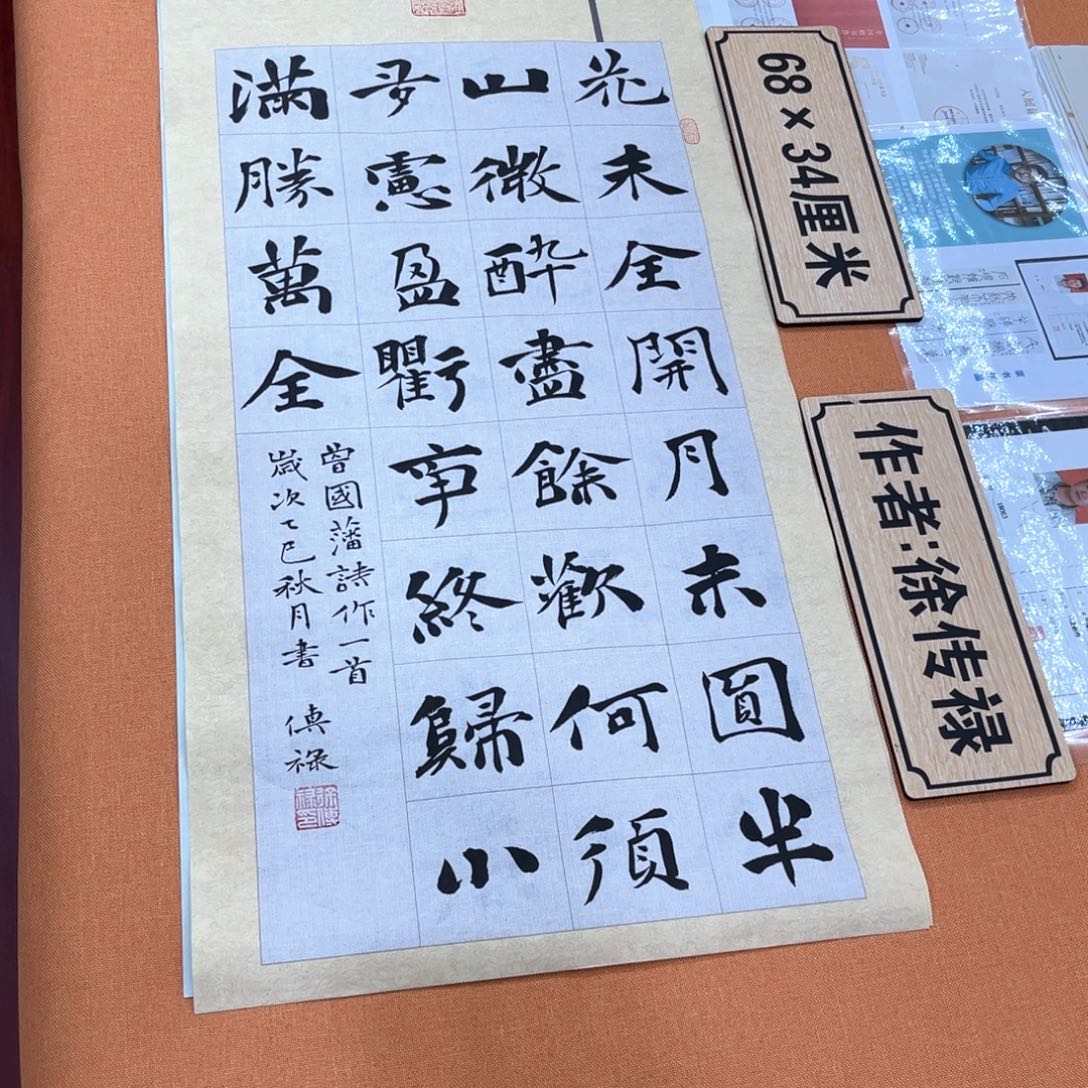 花未全開月未圓半
山微酔盡餘歡何須
多慮盈虧事終歸小
滿勝萬全
曾國藩詩作一首
歲次乙巳秋月書 傳祿
68×34厘米
作者:徐传禄